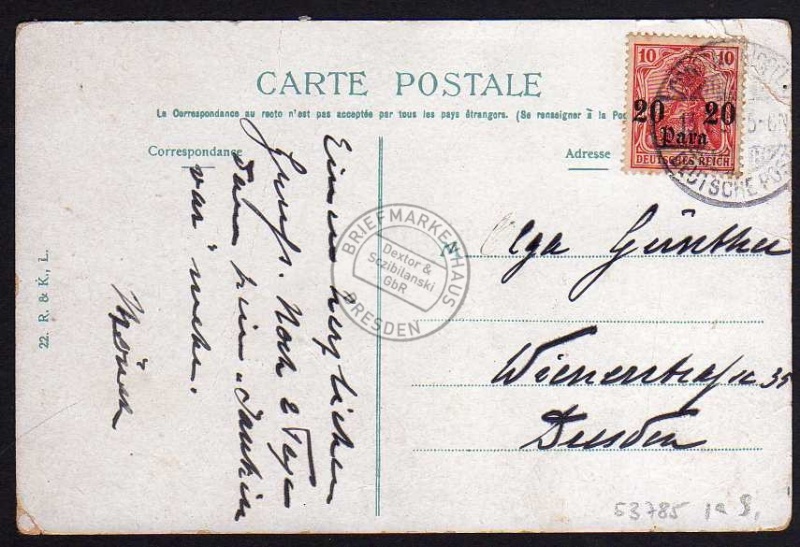 CARTE POSTALE
La Correspondance au recto n'est pas acceptée par tous les pays étrangers. (Se renseigner à la Pos
Correspondance
Adresse
10 10
20 20
Para
DEUTSCHES REICH
5-6N
DEUTSCHE POST
Einen herzlichen
Gruß. Noch 2 Tage
dann
war
Olga Günther
Wienerstraße 35
Dresden
22. R. & K., L.
BRIEFMARKENHAUS
Dextor &
Sczibilanski
GbR
DRESDEN
53785